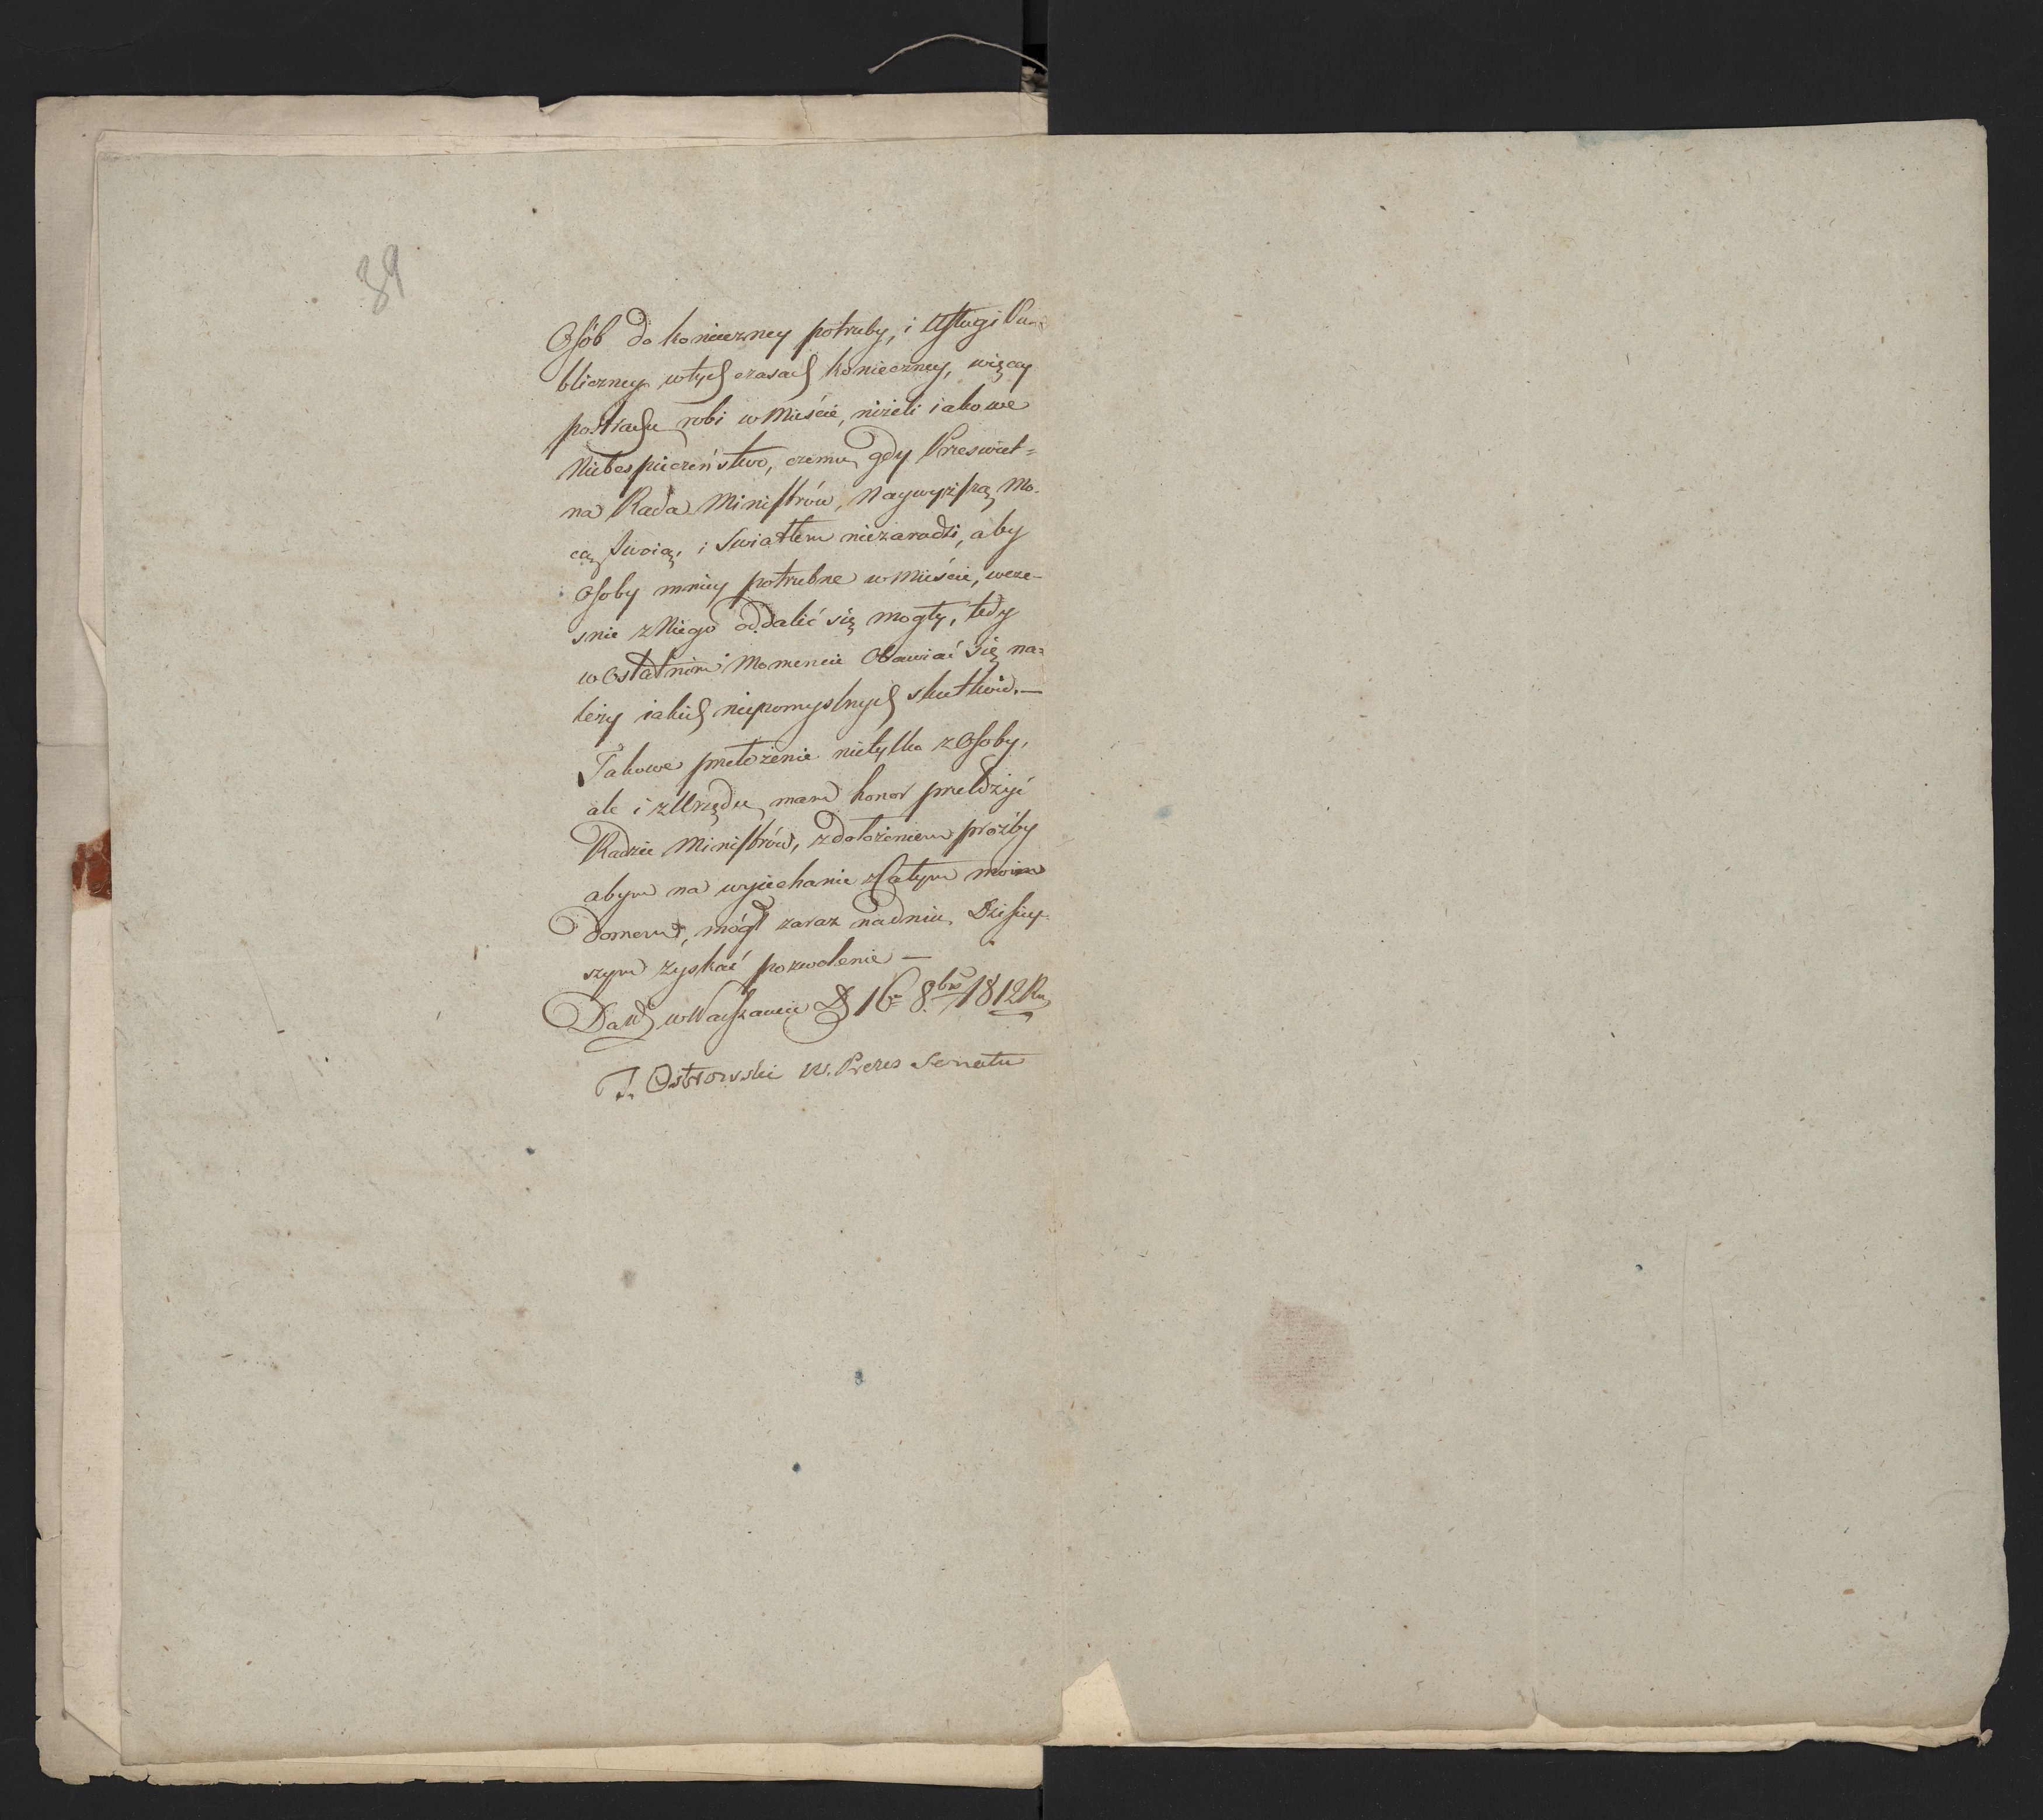 39
Osób do konieczney potrzeby, i Usługi Pu-
bliczney w tych czasach konieczney, więcey
postrachu robi w Mieście, niżeli iakowe
Niebespieczeństwo, czemu gdy Przeświet=
na Rada Ministrów, Naywyższą Mo-
cą Swoią, i Swiatłem niezaradzi, aby
Osoby mniey potrzebne w Mieście, wcze-
snie z Niego oddalić się mogły, tedy
w Ostatnim Momencie Obawiać Się na=
leży iakich niepomyslnych skutków. —
Takowe przełożenie nietylko z Osoby,
ale i z Urzędu mam honor przełożyć
Radzie Ministrów, z dołożeniem proźby
abym na wyiechanie z Całym moim
Domem, mógł zaraz na dniu Dzisiey-
szym zyskać pozwolenie —
Dań w Warszawie D 16 8bra 1812 Ru
T. Ostrowski W. Prezes Senatu